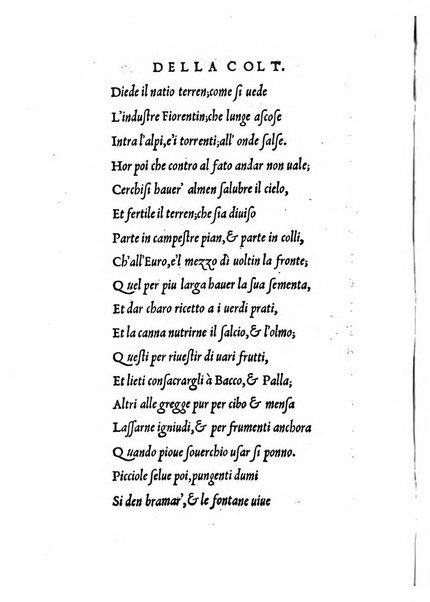 DELLA COLT.
Diede il natio terren; come ſi uede
L'induſtre Fiorentin; che lunge aſcoſe
Intra l'alpi, e'i torrenti; all' onde ſalſe.
Hor poi che contro al fato andar non uale;
Cerchiſi hauer' almen ſalubre il cielo,
Et fertile il terren; che ſia diuiſo
Parte in campeſtre pian, & parte in colli,
Ch'all'Euro, e'l mezzo dì uoltin la fronte;
Quel per piu larga hauer la ſua ſementa,
Et dar charo ricetto a i uerdi prati,
Et la canna nutrirne il ſalcio, & l'olmo;
Queſti per riueſtir di uari frutti,
Et lieti conſacrargli à Bacco, & Palla;
Altri alle gregge pur per cibo & menſa
Laſſarne igniudi, & per frumenti anchora
Quando pioue ſouerchio uſar ſi ponno.
Picciole ſelue poi, pungenti dumi
Si den bramar', & le fontane uiue